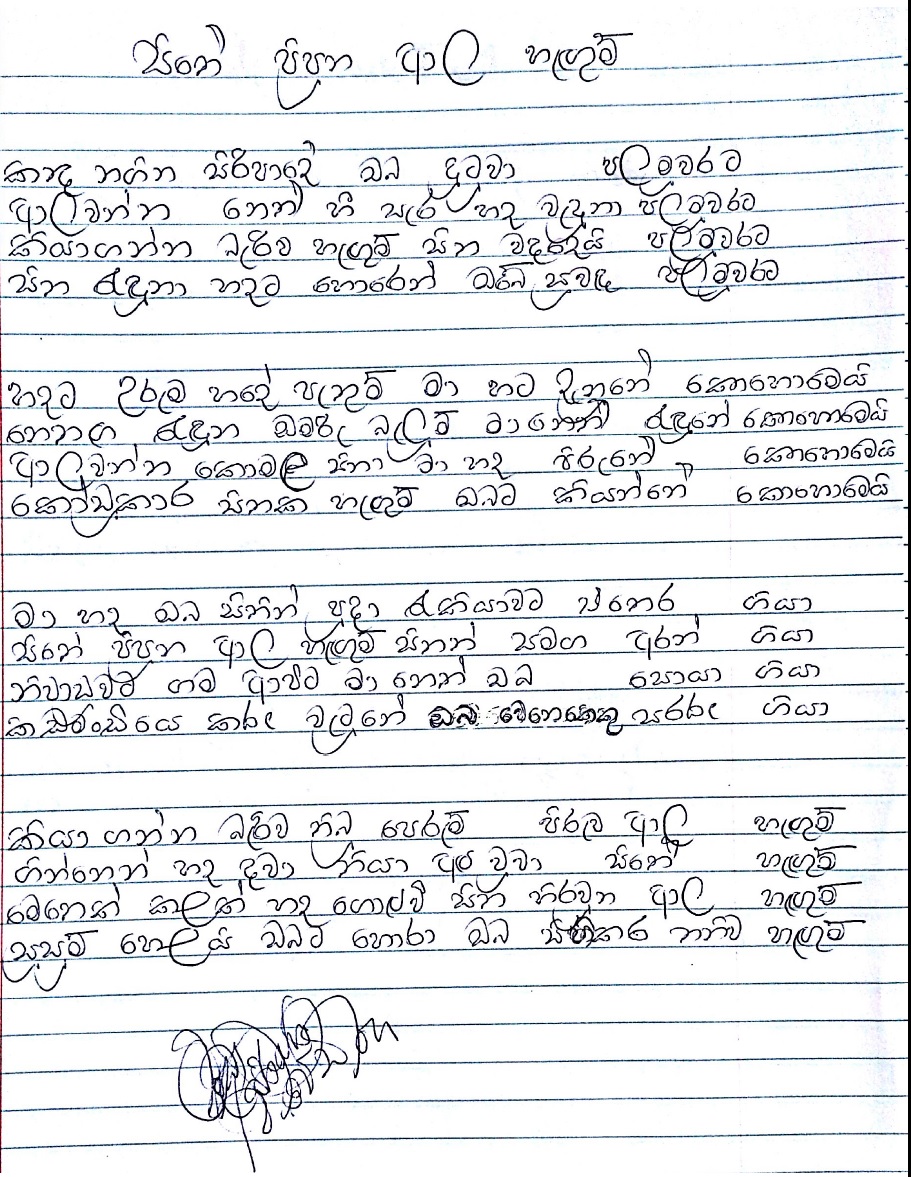 සිතේ පිපුන ආල හැඟුම්
කන්ද නගින සිරිපාදේ ඔබ දුටුවා පලමුවරට
ආලවන්න නෙත් හී සැර හද වැදුනා පලමුවරට
කියාගන්න බැරිව හැඟුම් සිත වද දෙයි පලමුවරට
සිත රැඳුනා හදට හොරෙන් ඔබේ සුවඳ පලමුවරට
හදට උරුම හදේ පැතුම් මා හට දැනුනේ කොහොමෙයි
නෙතග රැඳුන ඔබේ බැලුම් මා නෙතේ රැඳුනේ කොහොමෙයි
ආලවන්න කොමළ සිනා මා හද පිරුනේ කොහොමෙයි
කෝඩුකාර සිතක හැඟුම් ඔබට කියන්නේ කොහොමෙයි
මා හද ඔබ සිතින් පුදා රැකියාවට පිටතර ගියා
සිතේ පිපුන ආල හැඟුම් සිතින් සමග අරන් ගියා
නිවාඩුවට ගම ආවිට මා නෙත් ඔබ සොයා ගියා
කඩමංඩියෙ කරද වැටුනේ ඔබ වෙනෙකෙකු සරණ ගියා
කියා ගන්න බැරිව තිබූ පෙරුම් පිරුව ආල හැඟුම්
ගින්නෙන් හද දවා ගියා අළු වුවා සිතේ හැඟුම්
මෙතෙක් කලක් හද ගොලුවී සිත හිරවුන ආල හැඟුම්
සුසුම් හෙලයි ඔබට හොරා ඔබ හිමිකර නැතිව හැඟුම්